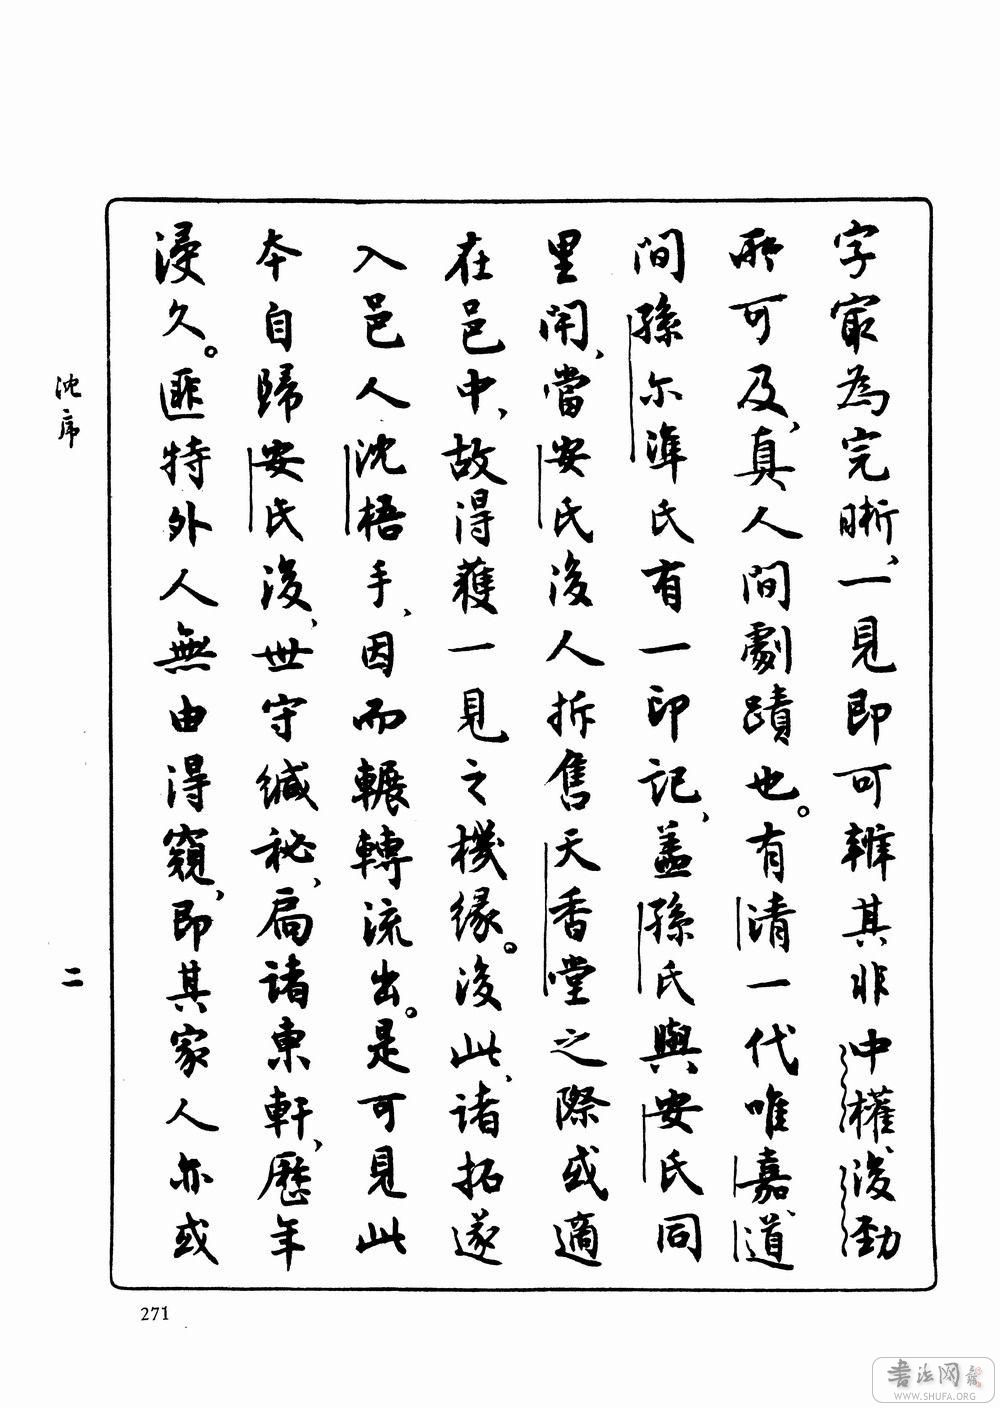 字最為完晰、一見即可辨其非中權後勁
所可及、真人間劇蹟也。有清一代唯嘉道
間孫尔準氏有一印記、蓋孫氏與安氏同
里閈、當安氏後人拆售天香堂之際或適
在邑中、故得獲一見之機緣。後此、諸拓遂
入邑人沈梧手、因而輾轉流出。是可見此
本自歸安氏後、世守緘祕、扃諸東軒、歷年
浸久。匪特外人無由得窺、即其家人亦或
沈序
二
271
书法网
WWW.SHUFA.ORG